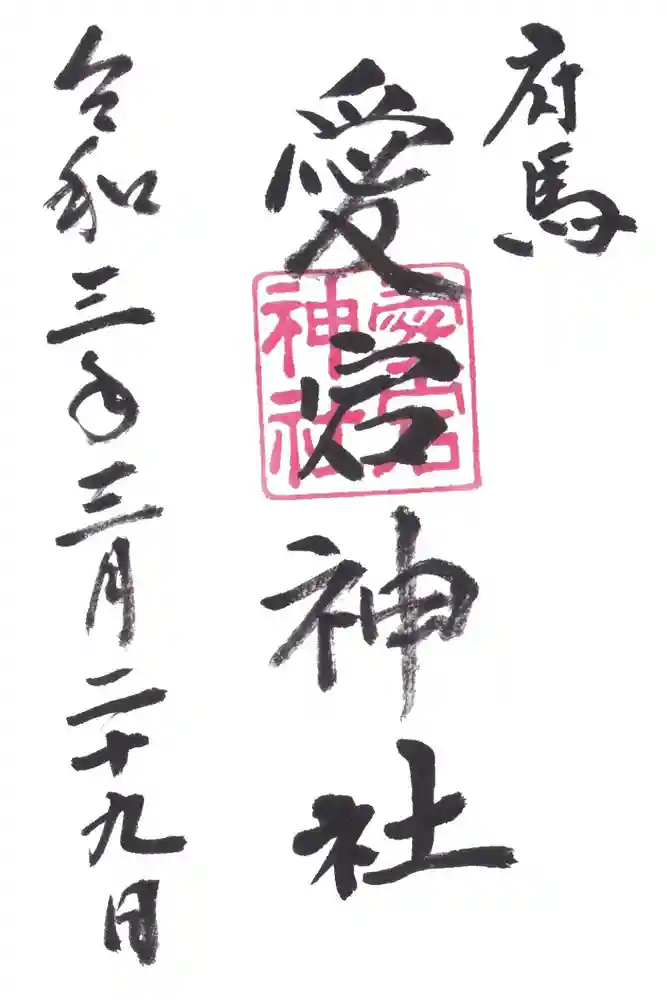 府馬
愛宕神社
愛宕
神社
令和三年三月二十九日